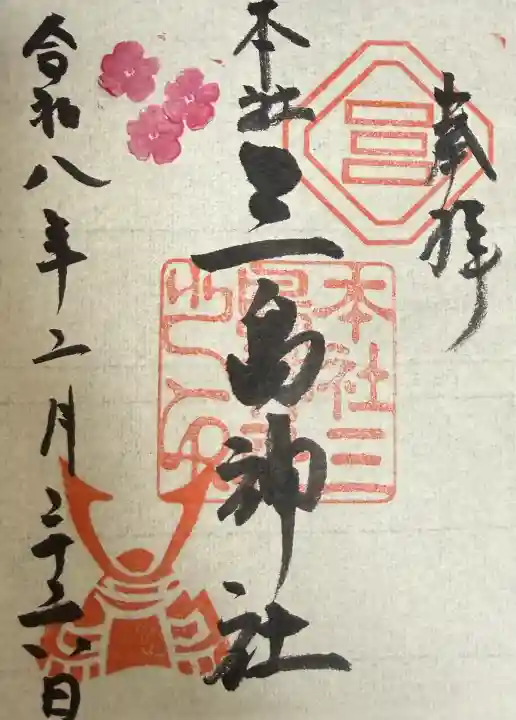 奉拝
本社
三島神社
本社三
島神社
之印
令和八年二月二十日